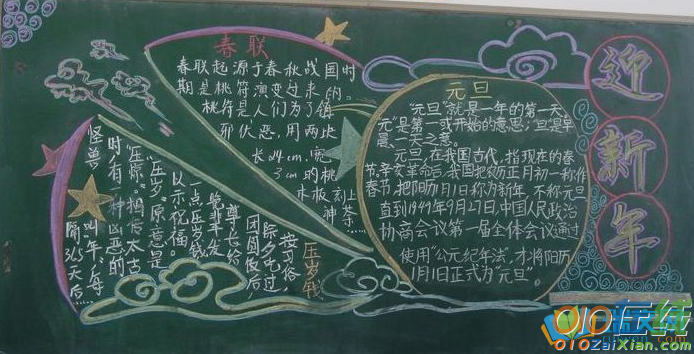 春联
春联起源于春秋战国时
期是桃符演变过来的,
桃符是人们为了镇
邪伏恶,用两块
长24cm,宽
3cm的桃
木板,刻上荼
神
元旦
"元旦"就是一年的第一天
"元"是第一或开始的意思;旦是早
晨、一天之意。
元旦,在我国古代,指现在的春
节,辛亥革命后,我国把农历正月初一称作
春节,把阳历1月1日称为新年,不称元旦
直到1949年9月27日,中国人民政治
协商会议第一届全体会议通过
使用"公元纪年法",才将阳历
1月1日正式为"元旦"。
迎
新
年
压岁钱
按习俗,
除夕吃过
团圆饭后,
尊长给
晚辈半发
一点压岁钱
以示祝福。
"压岁"原意是
"压惊"。相传太古
时,有一种凶恶的
怪兽
叫"年",每
隔365天后
010在线
010ZaiXian.com